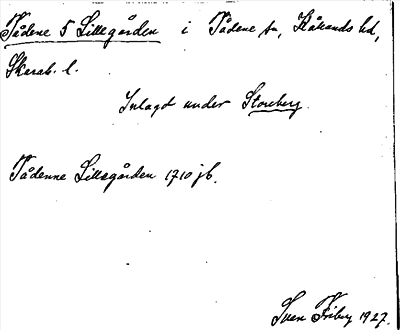 Tådene 5 Lillegården i Tådene sn, Kållands hd,
Skarab. l.
Inlagd under Storeberg.
Tådenne Lillegården 1710 jb.
Sven Friberg 1927.